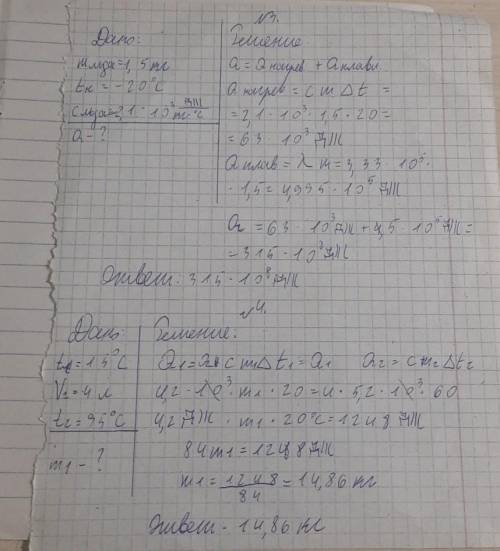 №3.
Дано:
mльда = 1,5 кг
tн = -20°C
cльда = 2,1 · 10³ Дж/кг·°C
Q - ?
Решение
Q = Q нагрев + Q плавл
Q нагрев = c m Δt =
= 2,1 · 10³ · 1,5 · 20 =
= 63 · 10³ Дж
Q плав = λ m = 3,33 · 10⁵ ·
· 1,5 = 4,995 · 10⁵ Дж
= 63 · 10³ Дж + 4,5 · 10⁵ Дж =
= 315 · 10⁸ Дж
Ответ: 315 · 10⁸ Дж
√4.
Дано:
V2 = 4 л
t2 = 95°C
m1 - ?
Решение.
c m Δt1 = Q1 Q2 = c m2 Δt2
4,2 · 10³ · m1 · 20 = 4 · 5,2 · 10³ · 60
4,2 Дж · m1 · 20°C = 1248 Дж
84m1 = 1248 Дж
m1 = 1248/84 = 14,86 кг
Ответ - 14,86 кг